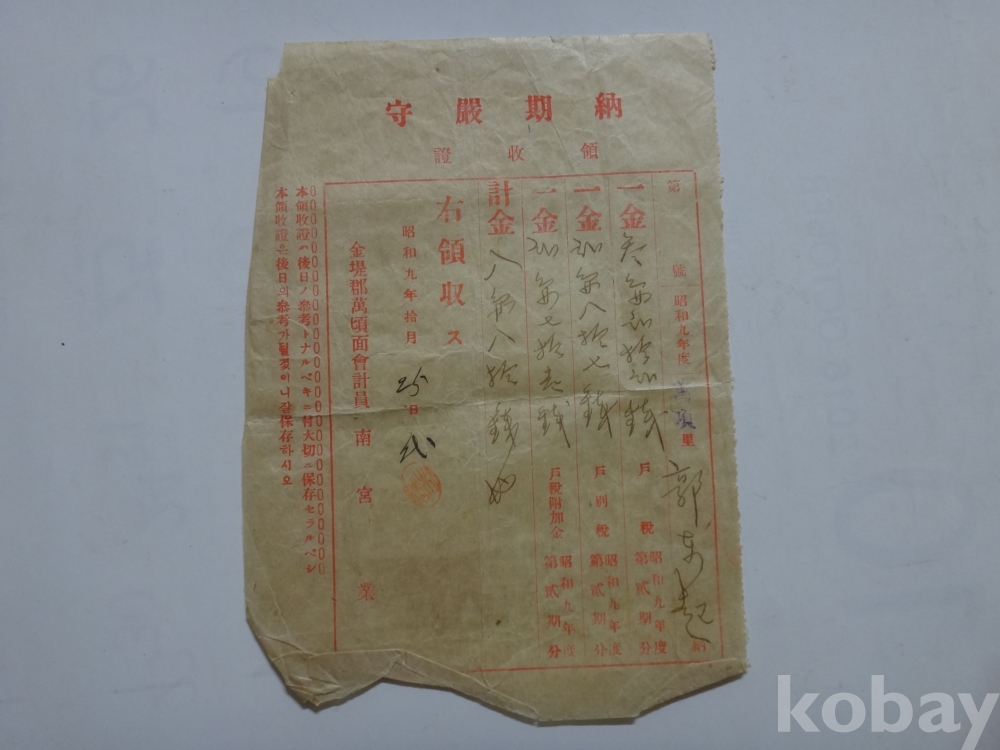 納期嚴守
領收證
第 號 昭和九年度 萬頃里 郭東起 納
一金 參圓貳拾貳錢 戶稅 昭和九年度第貳期分
一金 貳圓八拾七錢 戶別稅 昭和九年度第貳期分
一金 貳圓七拾壹錢 戶稅附加金 昭和九年度第貳期分
計金 八圓八拾錢也
右領収ス
昭和九年拾月25日
金堤郡萬頃面會計員 南宮業
本領收證ハ後日ノ參考トナルベキニ付大切ニ保存セラルベシ
本領收證은後日의參考가될것이니잘保存하시오
kobay